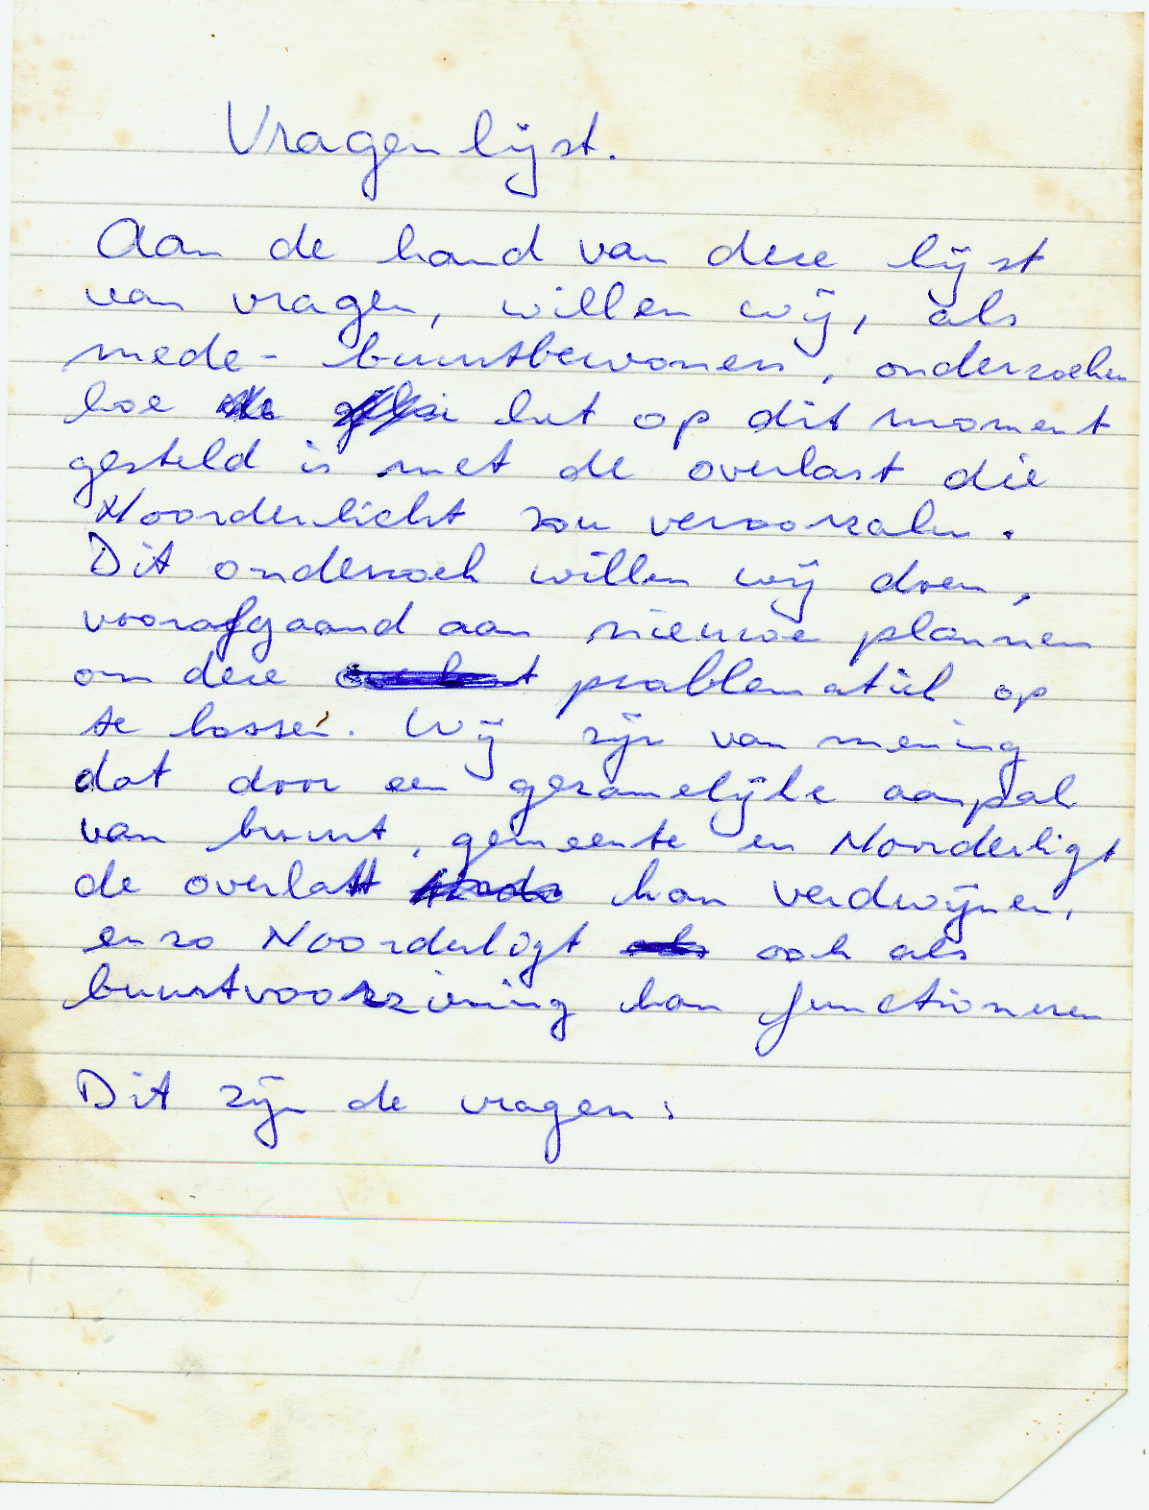 Vragenlijst.
Aan de hand van deze lijst
van vragen, willen wij, als
mede-buurtbewoners, onderzoeken
hoe het op dit moment
gesteld is met de overlast die
Noorderlicht zou veroorzaken.
Dit onderzoek willen wij doen,
voorafgaand aan nieuwe plannen
om deze problematiek op
te lossen. Wij zijn van mening
dat door een gezamelijke aanpak
van buurt, gemeente en Noorderligt
de overlast kan verdwijnen,
en zo Noorderligt ook als
buurtvoorziening kan functioneren
Dit zijn de vragen: